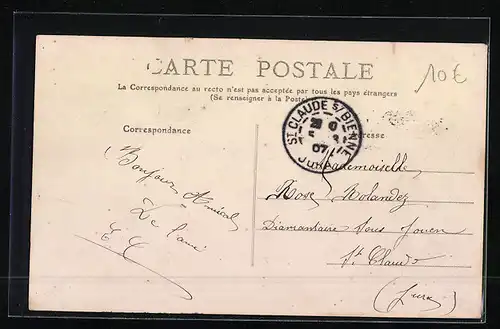 CARTE POSTALE
10€
La Correspondance au recto n'est pas acceptée par tous les pays étrangers
(Se renseigner à la Poste)
ST CLAUDE S/ BIENNE
5 3
07
JURA
Correspondance
resse
Mademoiselle
Bonjour Amical
De l'ami
Rose Rolandez
Diamantaire Sous
St Claude
(Jura)